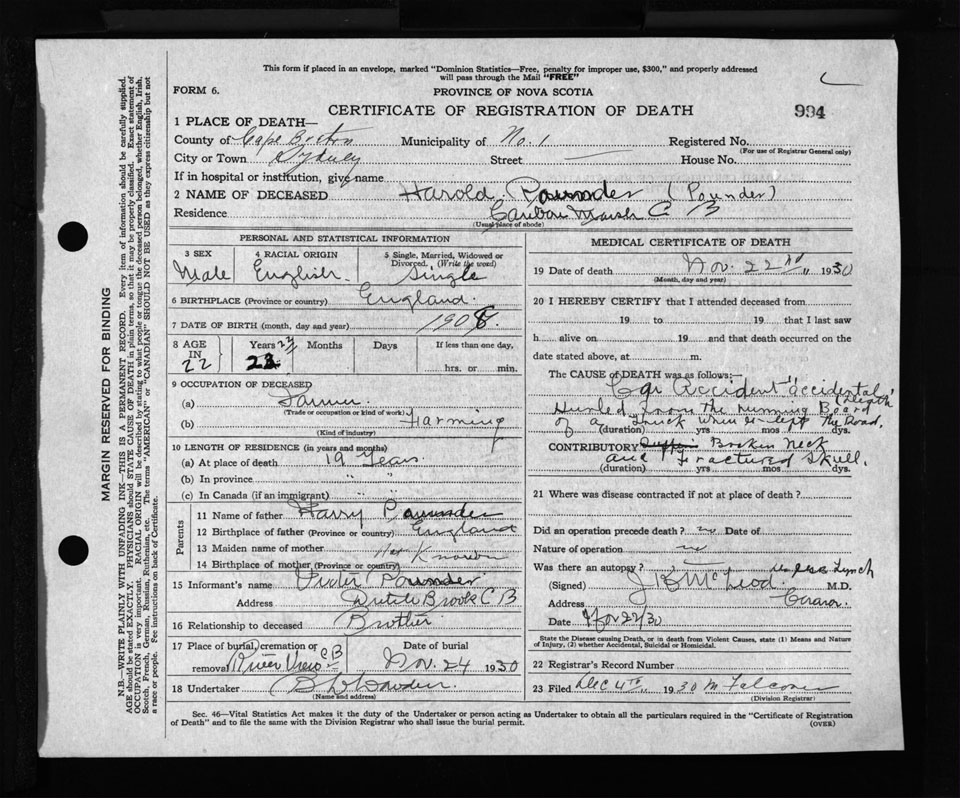 This form if placed in an envelope, marked "Dominion Statistics—Free, penalty for improper use, $300," and properly addressed
will pass through the Mail "FREE"
FORM 6.
PROVINCE OF NOVA SCOTIA
CERTIFICATE OF REGISTRATION OF DEATH
994
1 PLACE OF DEATH—
County of Cape Breton Municipality of No. 1 Registered No.
(For use of Registrar General only)
City or Town Sydney Street House No.
If in hospital or institution, give name
2 NAME OF DECEASED Harold Pounder (Pounder)
Residence Caribou Marsh C B
(Usual place of abode)
PERSONAL AND STATISTICAL INFORMATION
3 SEX Male
4 RACIAL ORIGIN English
5 Single, Married, Widowed or Divorced. (Write the word) Single
6 BIRTHPLACE (Province or country) England.
7 DATE OF BIRTH (month, day and year) 1908.
8 AGE IN 22 Years 22 Months Days If less than one day,
hrs. or min.
9 OCCUPATION OF DECEASED
(a) Farmer
(Trade or occupation or kind of work)
(b) Farming
(Kind of industry)
10 LENGTH OF RESIDENCE (in years and months)
(a) At place of death 19 Years
(b) In province " "
(c) In Canada (if an immigrant) " "
Parents
11 Name of father Harry Pounder
12 Birthplace of father (Province or country) England
13 Maiden name of mother Not Known
14 Birthplace of mother (Province or country)
15 Informant's name Pounder
Address Dutch Brook C B
16 Relationship to deceased Brother
17 Place of burial, cremation or removal River View CB
Date of burial Nov. 24 1930
18 Undertaker
(Name and address)
MEDICAL CERTIFICATE OF DEATH
19 Date of death Nov. 22nd 1930
(Month, day and year)
20 I HEREBY CERTIFY that I attended deceased from
19 to 19 that I last saw
h alive on 19 and that death occurred on the
date stated above, at m.
The CAUSE OF DEATH was as follows:—
Car Accident "accidental" death
Hurled from the running Board
of a Truck when it left The Road.
(duration) yrs mos dys.
CONTRIBUTORY Broken Neck
and Fractured Skull.
(duration) yrs mos dys.
21 Where was disease contracted if not at place of death?
Did an operation precede death? no Date of
Nature of operation no
Was there an autopsy?
(Signed) McLeod M.D.
Address Coroner
Date Nov 22/30
State the Disease causing Death, or in death from Violent Causes, state (1) Means and Nature
of Injury, (2) whether Accidental, Suicidal or Homicidal.
22 Registrar's Record Number
23 Filed Dec 4th 1930 M Falconer
(Division Registrar)
Sec. 46—Vital Statistics Act makes it the duty of the Undertaker or person acting as Undertaker to obtain all the particulars required in the "Certificate of Registration
of Death" and to file the same with the Division Registrar who shall issue the burial permit.
(OVER)
MARGIN RESERVED FOR BINDING
N.B.—WRITE PLAINLY WITH UNFADING INK—THIS IS A PERMANENT RECORD. Every item of information should be carefully supplied.
AGE should be stated EXACTLY. PHYSICIANS should STATE CAUSE OF DEATH in plain terms, so that it may be properly classified. Exact statement of
OCCUPATION is very important. RACIAL ORIGIN will be described by stating to what people or tongue the deceased person belonged, whether English, Irish,
Scotch, French, German, Russian, Ruthenian, etc. The terms "AMERICAN" or "CANADIAN" SHOULD NOT BE USED as they express citizenship but not
a race or people. See instructions on back of Certificate.